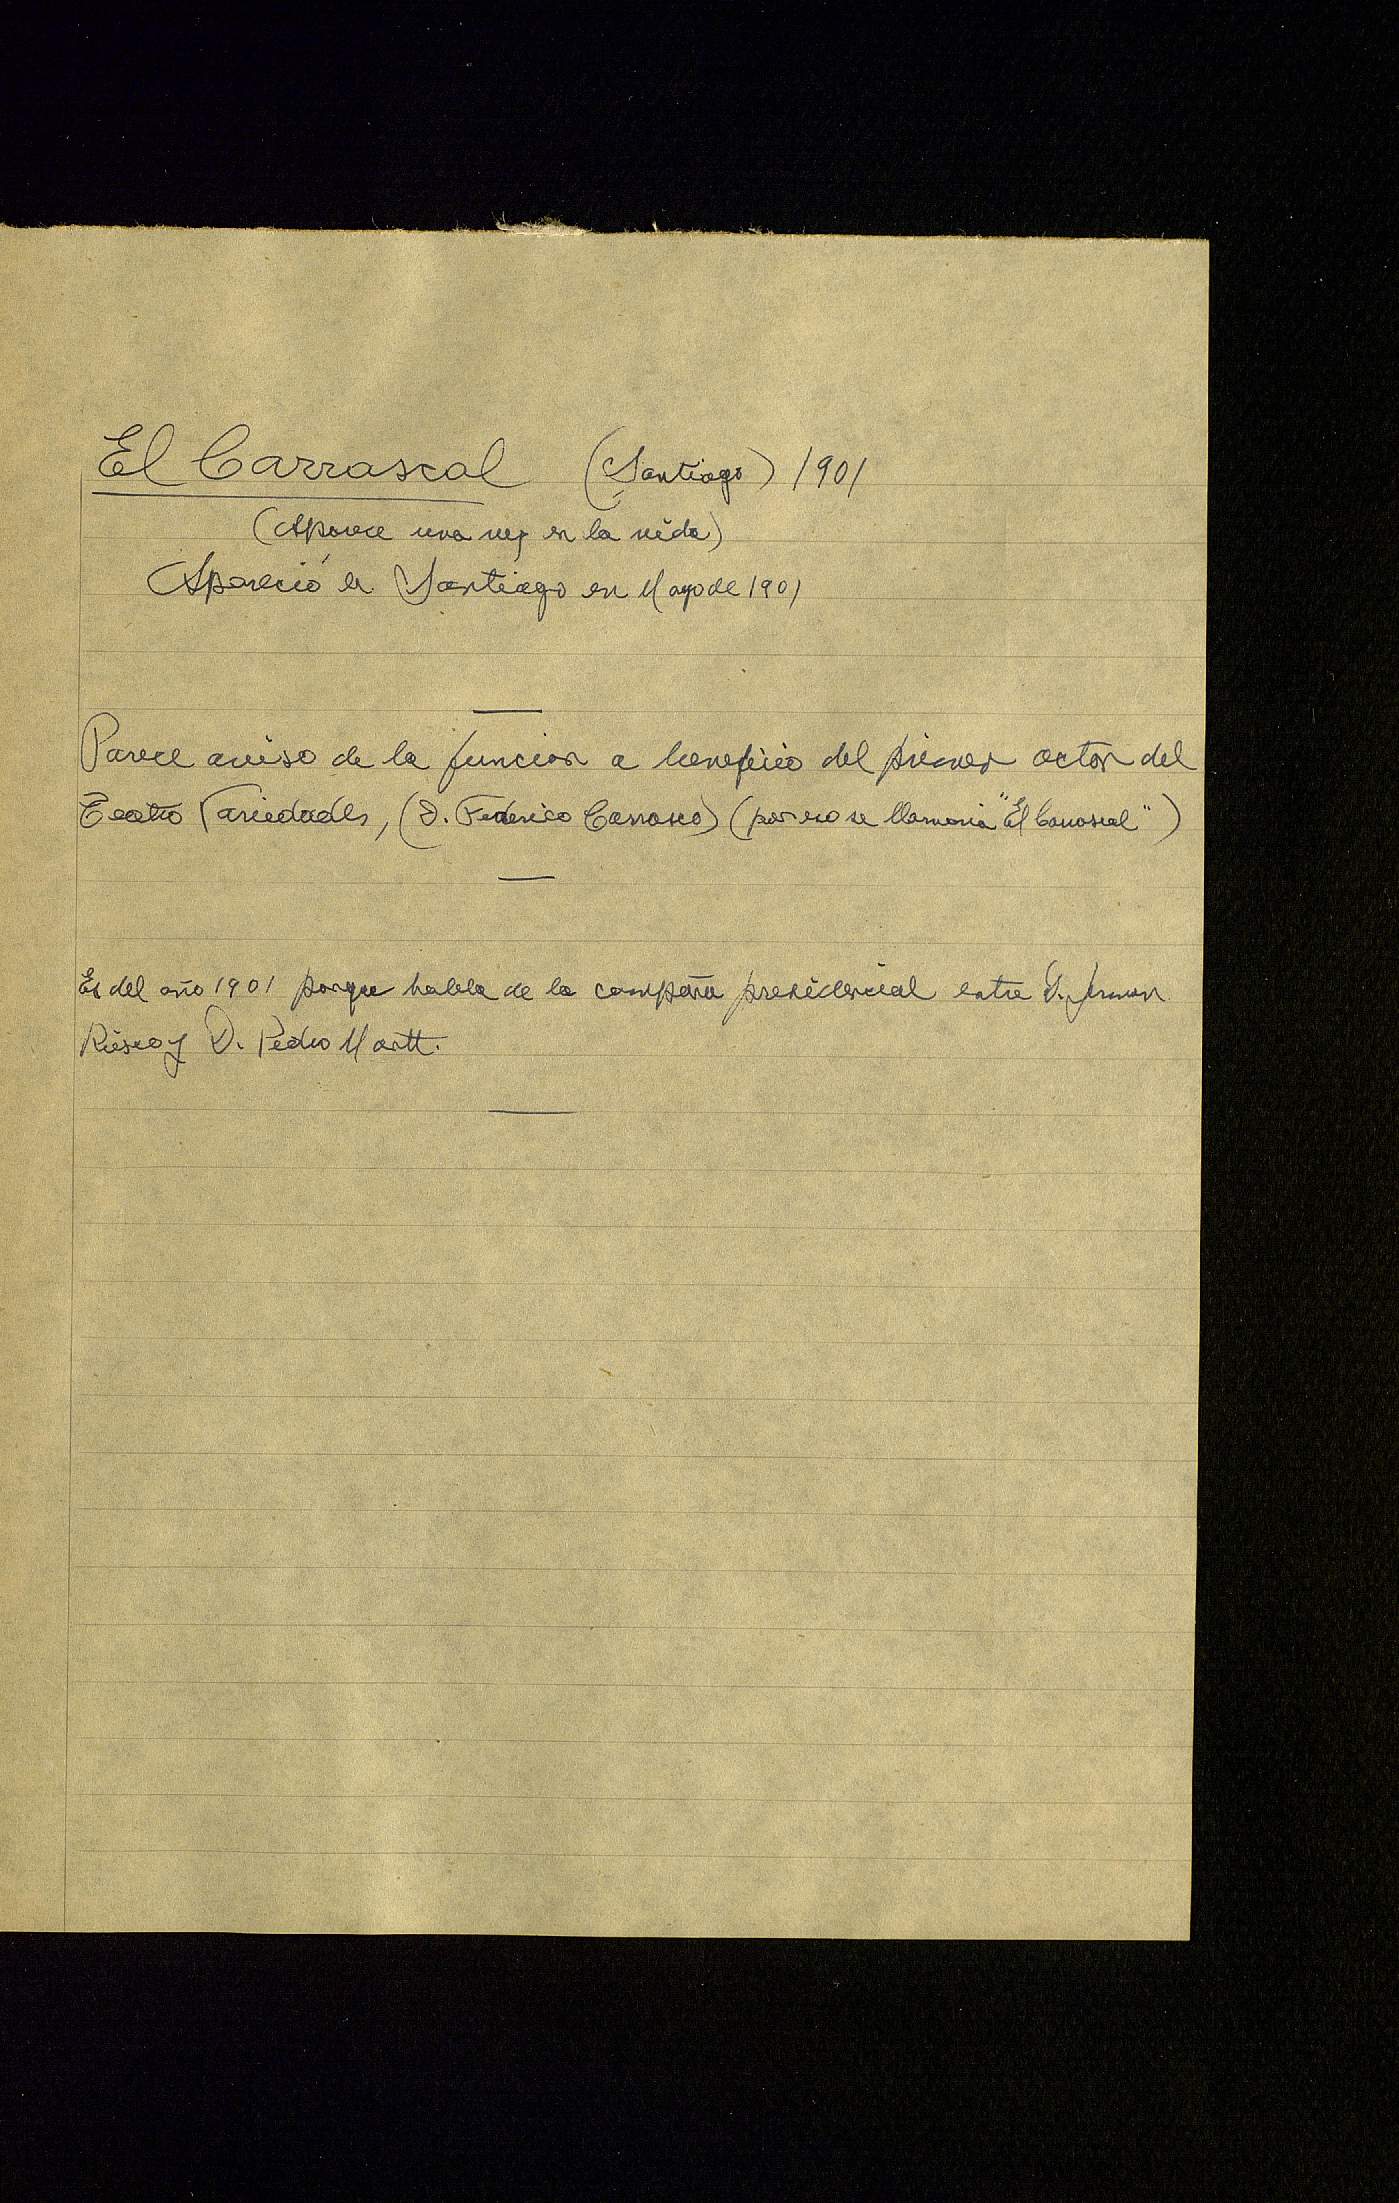 El Carrascal (Santiago) 1901
(Aparece una vez en la vida)
Apareció en Santiago en Mayo de 1901
Parece aviso de la funcion a beneficio del primer actor del
Teatro Variedades, (D. Federico Carrasco) (por eso se llamaria "El Carrascal")
Es del año 1901 porque habla de la campaña presidencial entre D. Jerman
Riesco y D. Pedro Montt.